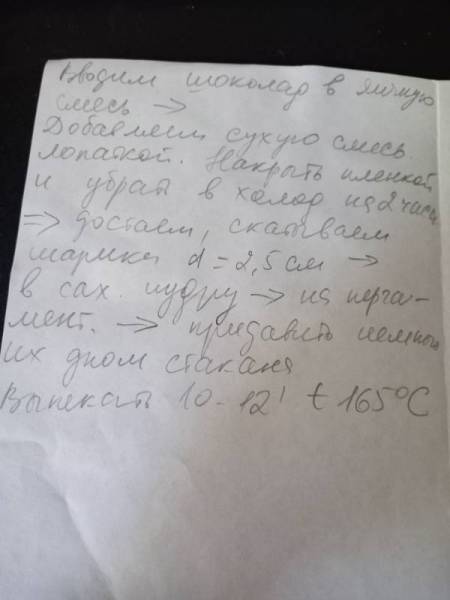 Вводим шоколад в яичную
смесь →
Добавляем сухую смесь
лопаткой. Накрыть пленкой
и убрать в холод на 2 часа
⇒ достаем, скатываем
шарики d = 2,5 см →
в сах. пудру → на перга-
мент. → придавить немного
их дном стакана
Выпекать 10-12' t 165°C